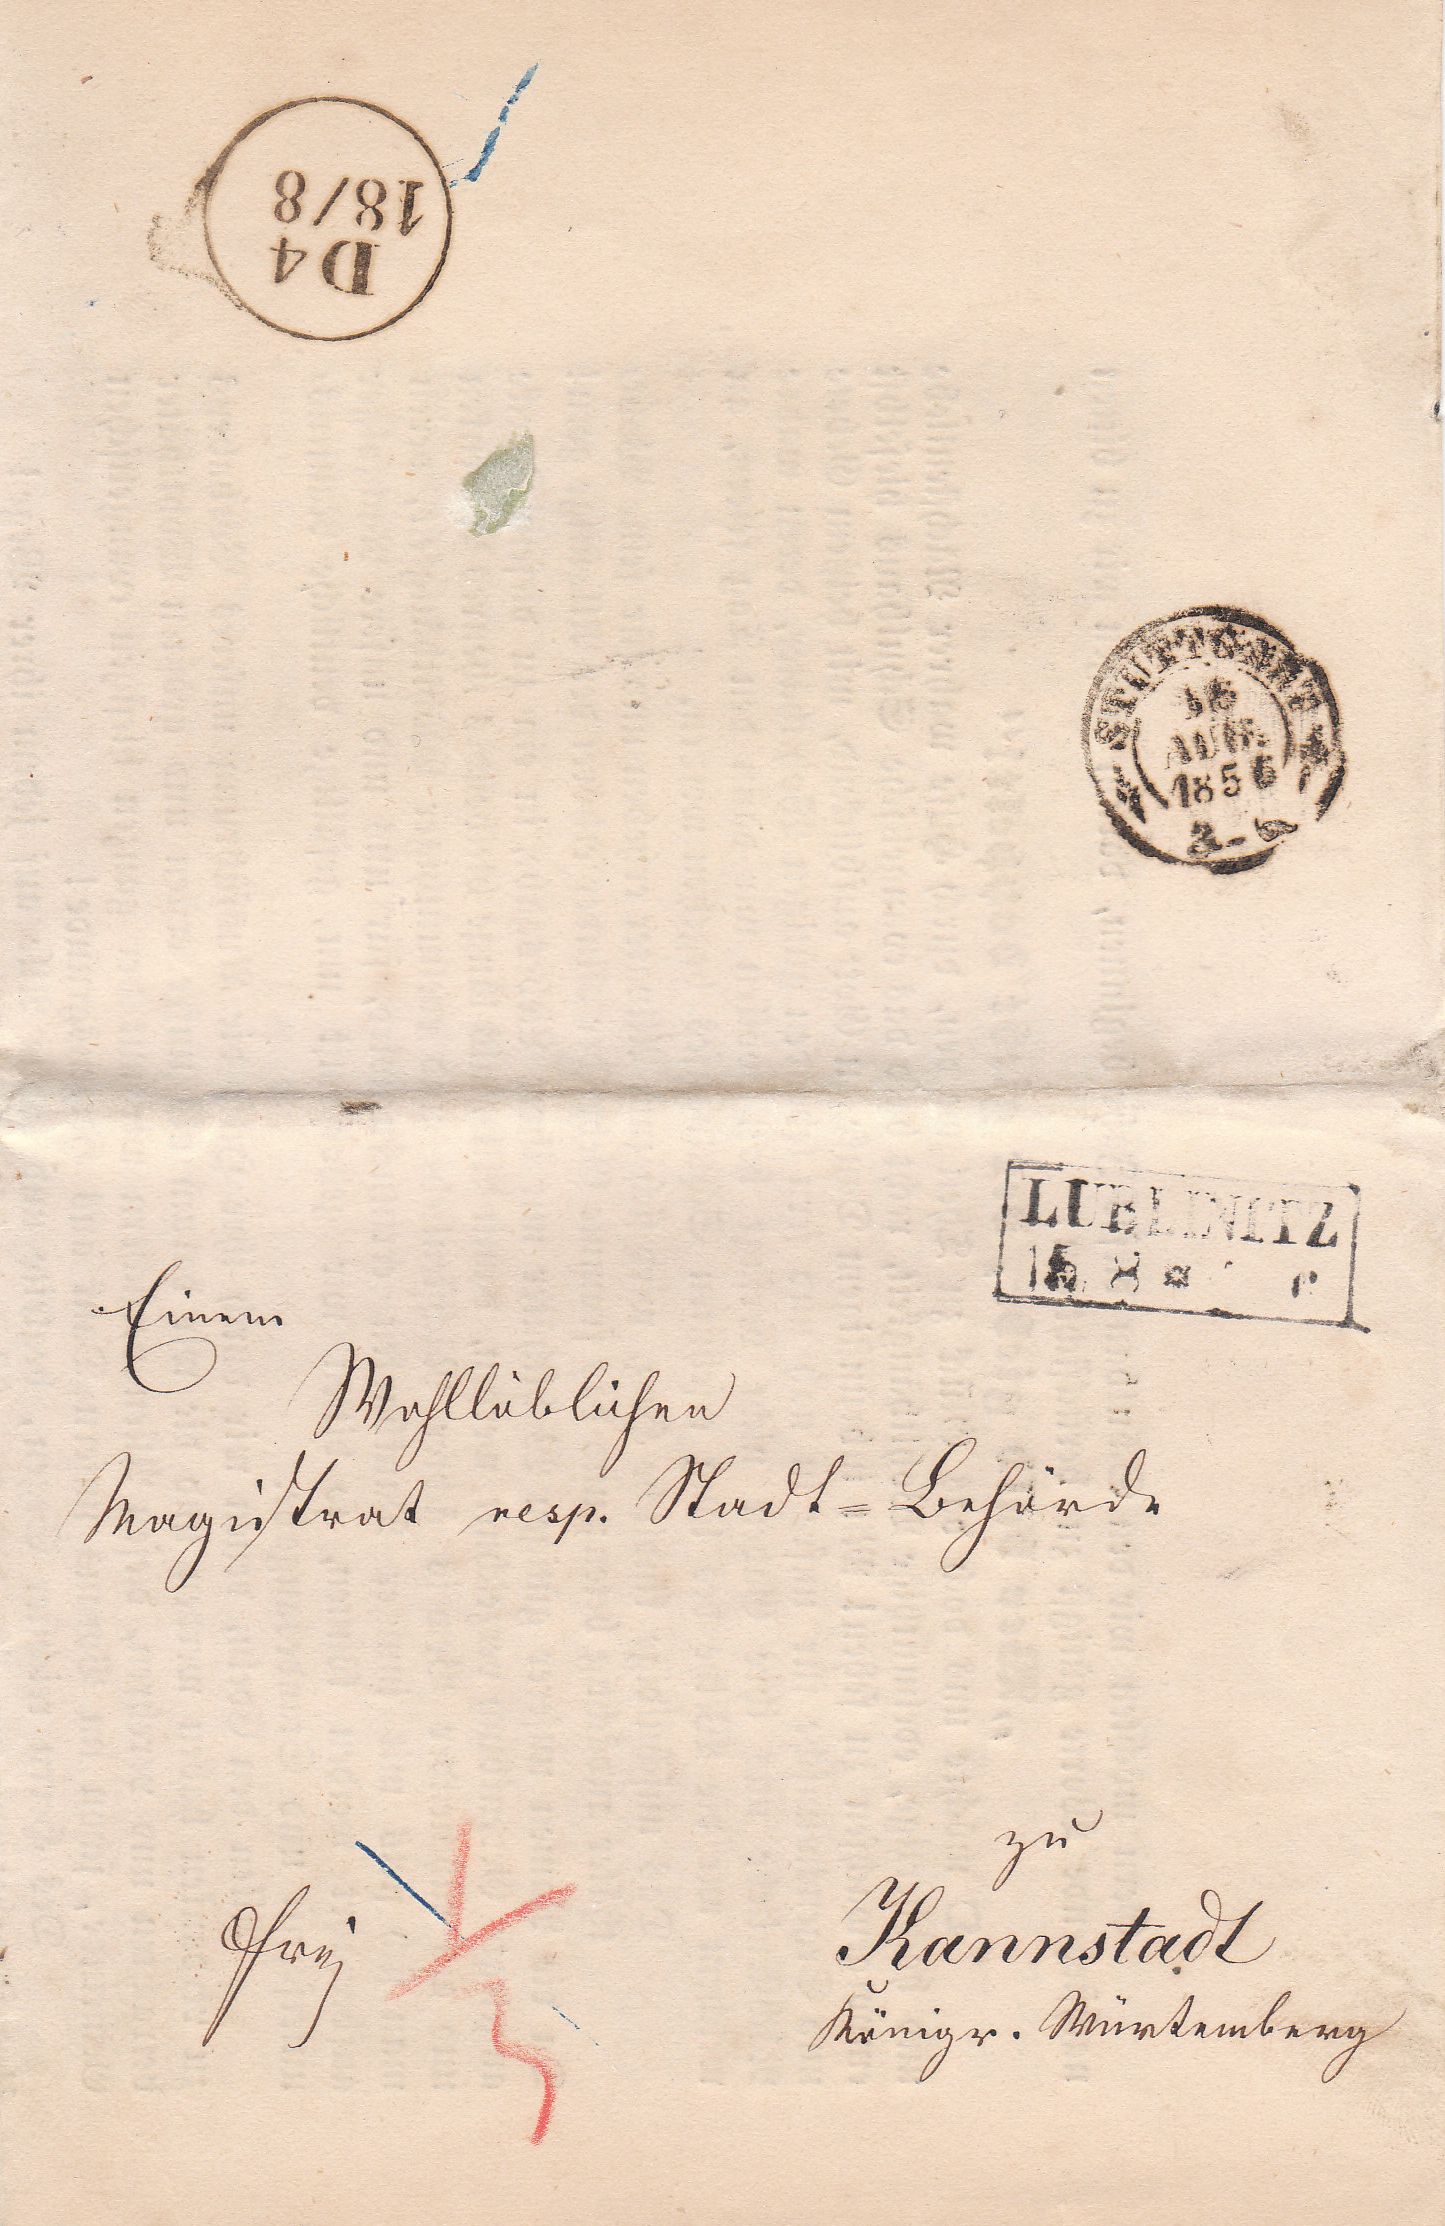 D4
18/8
STUTTGART
18
AUG.
1856
LUBLINITZ
15 8
Einem
Wohllöblichen
Magistrat resp. Stadt=Behörde
zu
Kannstadt
Königr. Würtemberg
frej